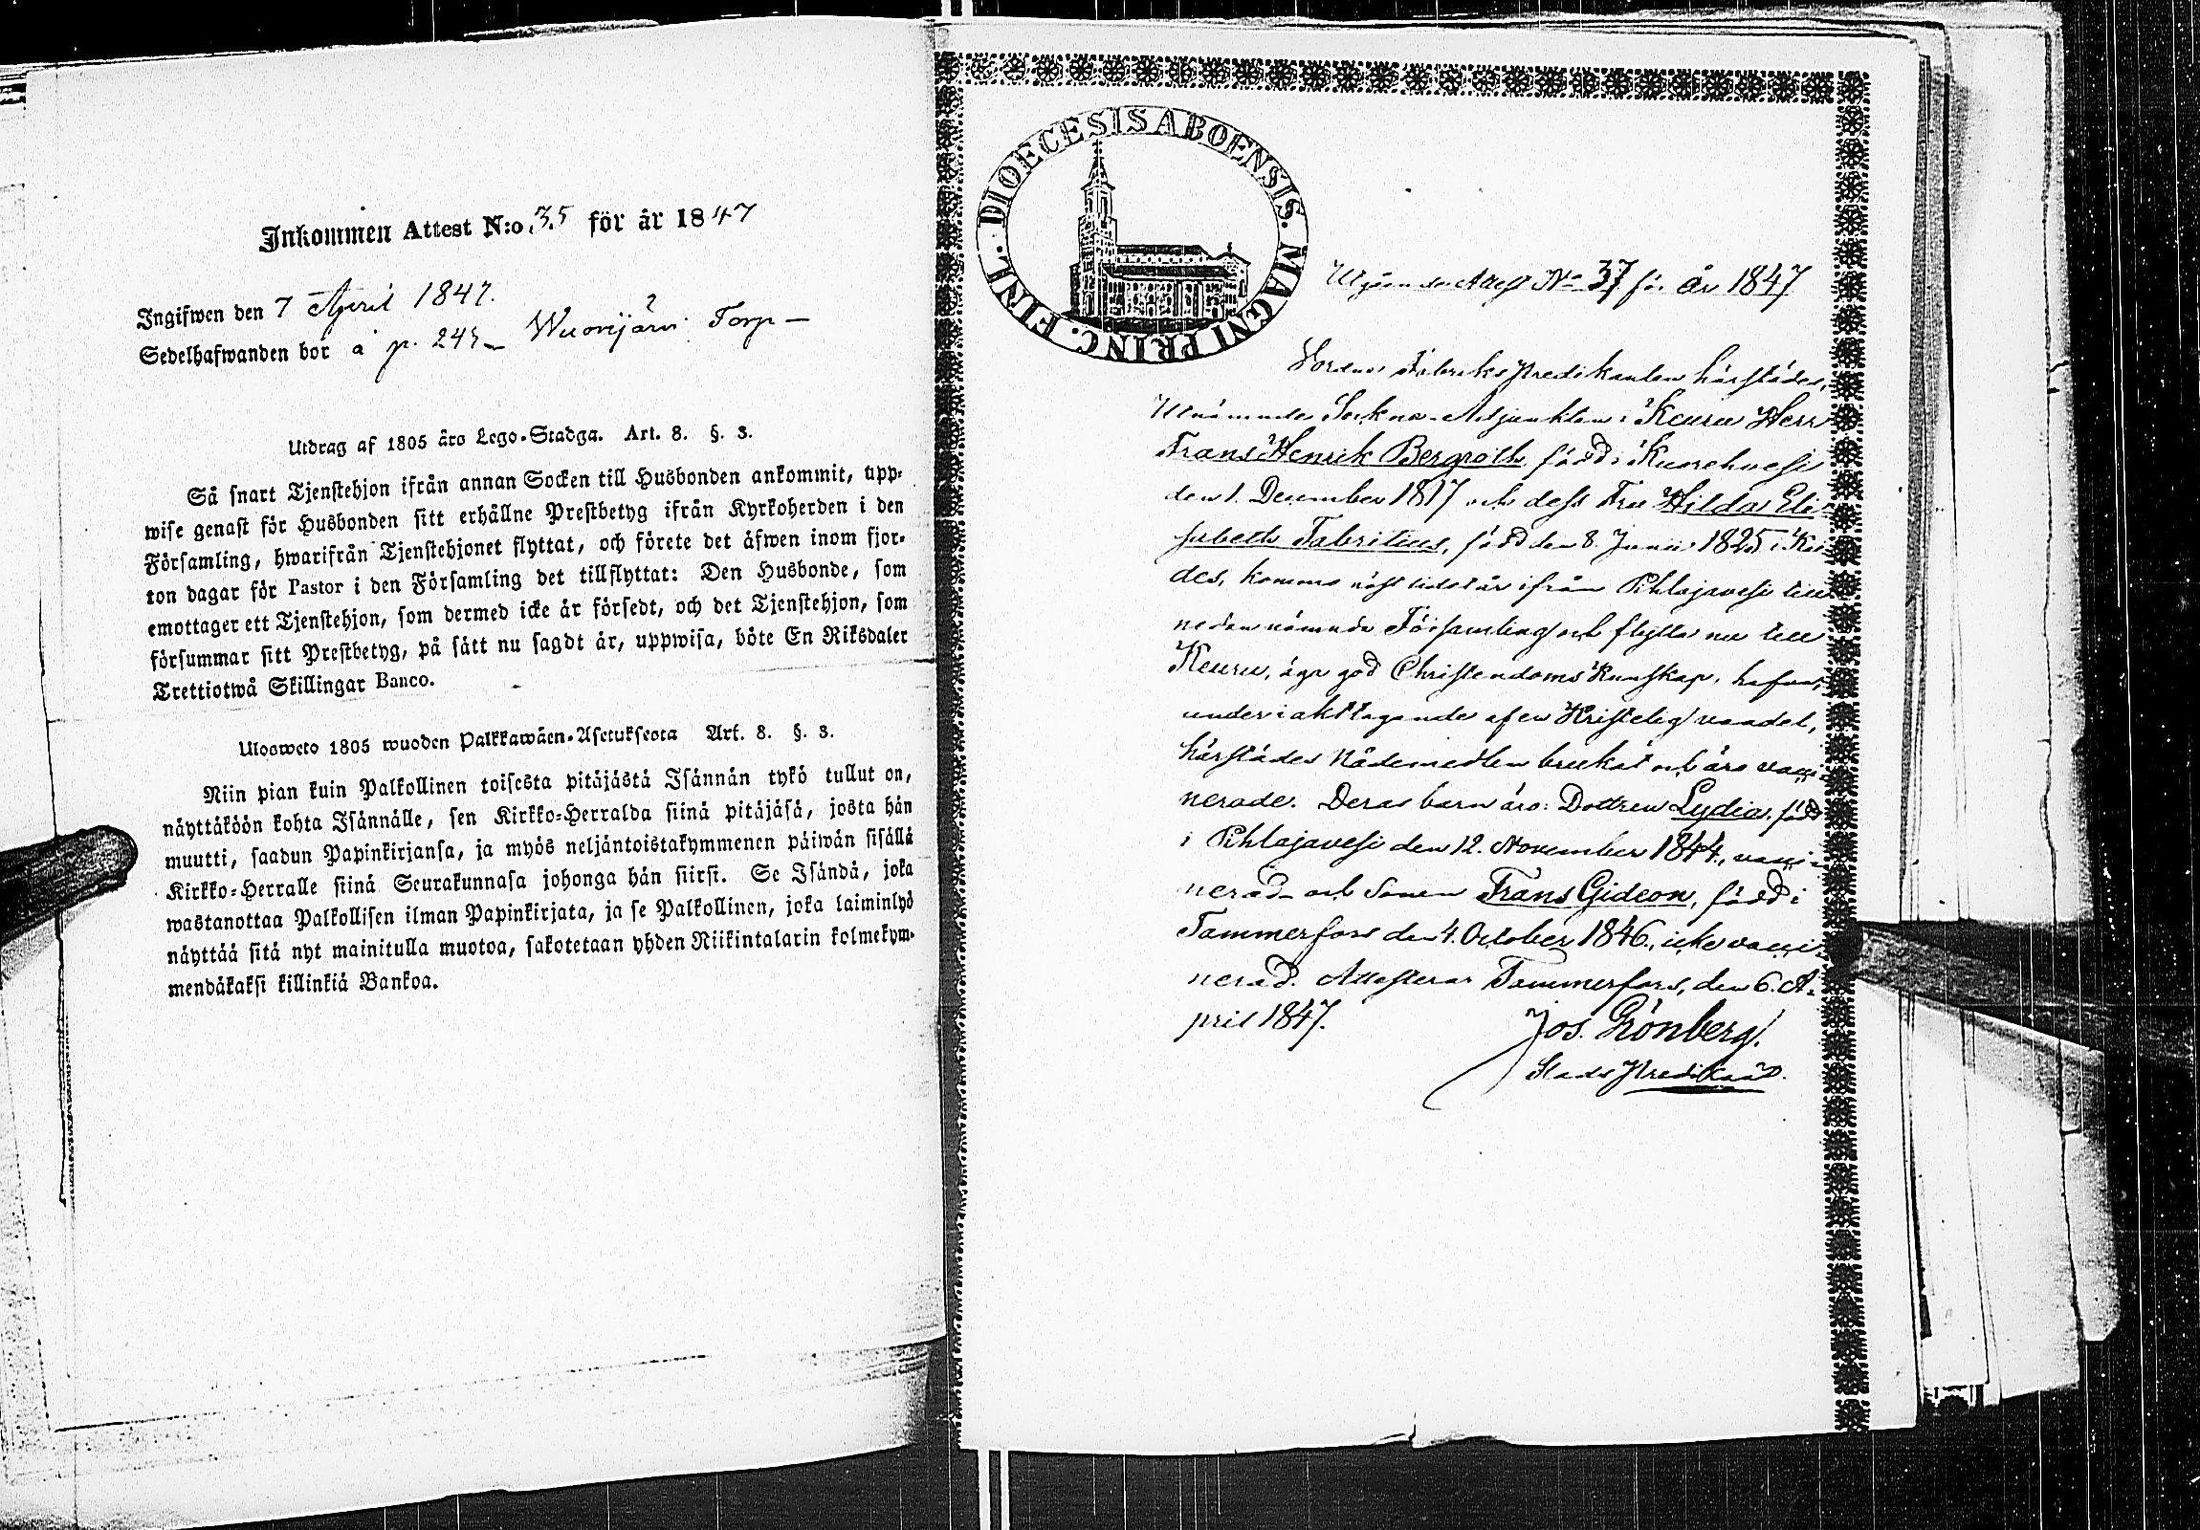 Inkommen Attest N:o 35 för år 1847
Ingifwen den 7 April 1847.
Sedelhafwanden bor å p. 245 Wuorijärvi Torp
Utdrag af 1805 års Lego-Stadga. Art. 8. §. 3.
Så snart Tjenstehjon ifrån annan Socken till Husbonden ankommit, upp-
wise genast för Husbonden sitt erhållne Prestbetyg ifrån Kyrkoherden i den
Församling, hwarifrån Tjenstehjonet flyttat, och förete det äfwen inom fjor-
ton dagar för Pastor i den Församling det tillflyttat: Den Husbonde, som
emottager ett Tjenstehjon, som dermed icke är försedt, och det Tjenstehjon, som
försummar sitt Prestbetyg, på sätt nu sagdt är, uppwisa, böte En Riksdaler
Trettiotwå Skillingar Banco.
Ulosweto 1805 wuoden Palkkawäen-Asetuksesta Art. 8. §. 3.
Niin pian kuin Palkollinen toisesta pitäjästä Isännän tykö tullut on,
näyttäköön kohta Isännälle, sen Kirkko-Herralda siinä pitäjäsä, josta hän
muutti, saadun Papinkirjansa, ja myös neljäntoistakymmenen päiwän sisällä
Kirkko-Herralle siinä Seurakunnasa johonga hän siirsi. Se Isändä, joka
wastanottaa Palkollisen ilman Papinkirjata, ja se Palkollinen, joka laiminlyö
näyttää sitä nyt mainitulla muotoa, sakotetaan yhden Riikintalarin kolmekym-
mendäkaksi killinkiä Bankoa.
DIOECESIS ABOENSIS. MAGNI PRINC. FINL.
Utgående Attest No 37 för år 1847
Vordne Fabriks Predikanten härstädes,
Utnämnde Sockne-Adjunkten i Keuru Herr
Frans Henrik Bergroth, född i Kuorehvesi
den 1. December 1817 och dess Fru Hilda Eli-
sabeth Fabritius, född den 8. Junii 1825 i Ki-
des, komne sistlidet år ifrån Pihlajavesi till
nedannämnde Församling och flytta nu till
Keuru, äga god Christendoms Kunskap, hafva,
under iakttagande af en Kristelig vandel,
härstädes Nådemedlen brukat och äro vacci-
nerade. Deras barn äro: Dottren Lydia, född
i Pihlajavesi den 12. November 1844, vacci-
nerad och Sonen Frans Gideon, född i
Tammerfors den 4. October 1846, icke vacci-
nerad. Attesterar Tammerfors, den 6. A-
pril 1847.
Jos. Grönberg.
Stads Predikant.